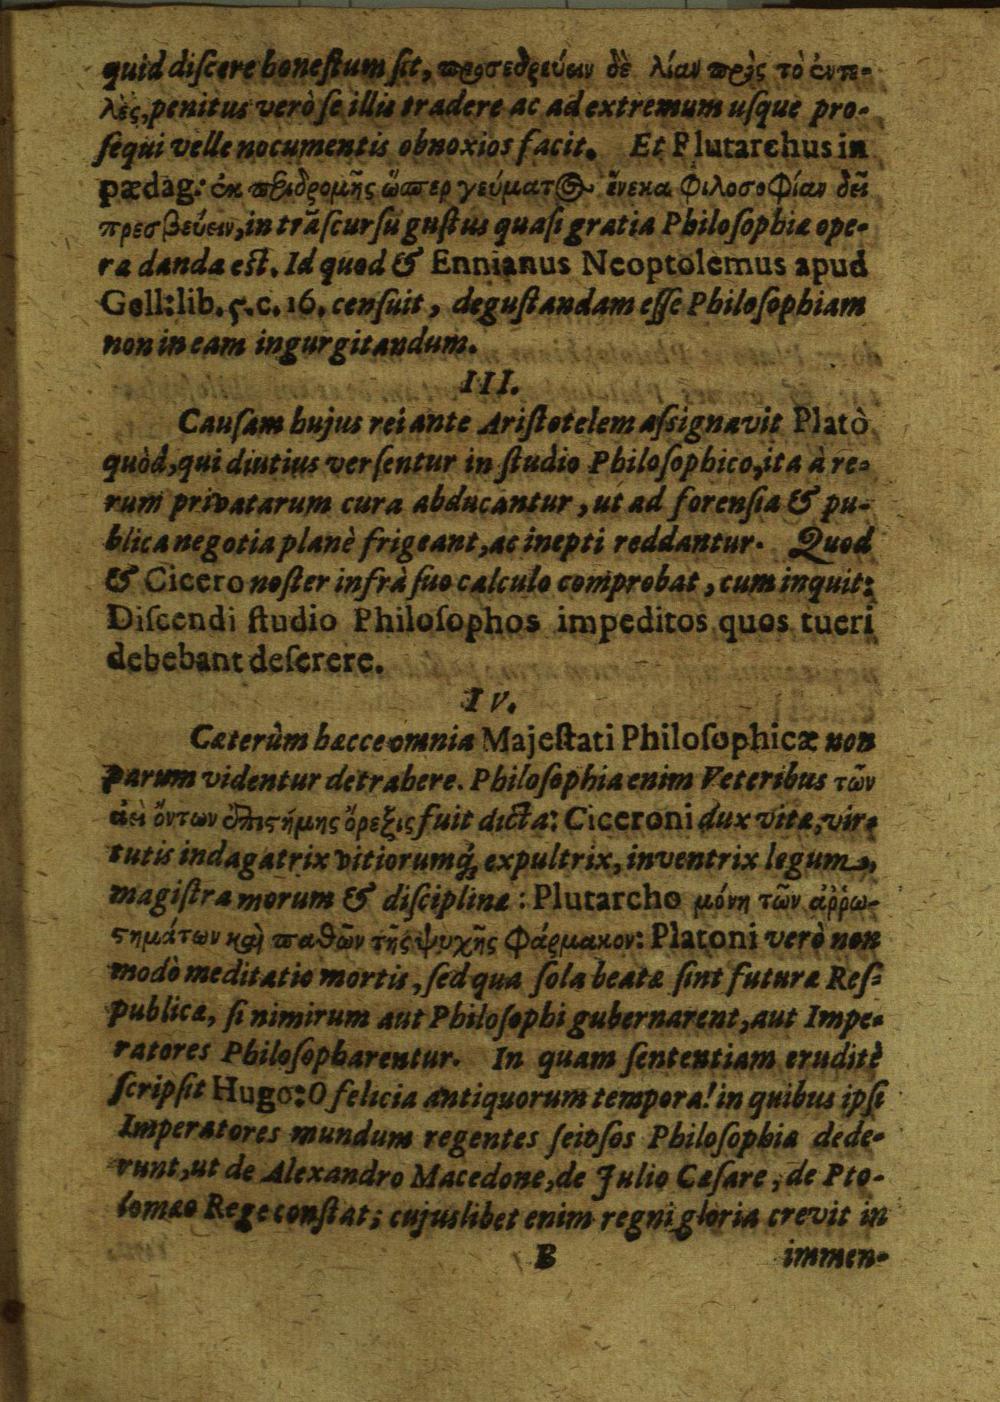 quid discere honestum sit, προσεδρεύειν δὲ λίαν πρὸς τὸ ἐντε-
λὲς, penitus verò se illis tradere ac ad extremum usque pro-
sequi velle nocumentis obnoxios facit. Et Plutarchus in
pædag: ἐκ περιδρομῆς ὥσπερ γεύματος ἕνεκα φιλοσοφίαν δεῖ
πρεσβεύειν, in trãscursu gustus quasi gratia Philosophiæ ope-
ra danda est. Id quod & Ennianus Neoptolemus apud
Gell: lib. 5. c. 16. censuit, degustandam esse Philosophiam
non in eam ingurgitandum.
III.
Causam hujus rei ante Aristotelem assignavit Platò
quòd, qui diutius versentur in studio Philosophico, ita à re-
rum privatarum cura abducantur, ut ad forensia & pu-
blica negotia planè frigeant, ac inepti reddantur. Quod
& Cicero noster infrà suo calculo comprobat, cum inquit:
Discendi studio Philosophos impeditos quos tueri
debebant deserere.
IV.
Cæterùm hæcce omnia Majestati Philosophicæ non
parum videntur detrahere. Philosophia enim Veteribus τῶν
ἀεὶ ὄντων ἐπιστήμης ὄρεξις fuit dicta: Ciceroni dux vitæ, vir-
tutis indagatrix vitiorumq́; expultrix, inventrix legum,
magistra morum & disciplinæ: Plutarcho μόνη τῶν ἀῤῥω-
στημάτων καὶ παθῶν τῆς ψυχῆς φάρμακον: Platoni verò non
modò meditatio mortis, sed qua sola beatæ sint futuræ Res-
publicæ, si nimirum aut Philosophi gubernarent, aut Impe-
ratores Philosopharentur. In quam sententiam eruditè
scripsit Hugo: O felicia antiquorum tempora! in quibus ipsi
Imperatores mundum regentes seipsos Philosophiæ dede-
runt, ut de Alexandro Macedone, de Julio Cæsare, de Pto-
lomæo Rege constat; cujuslibet enim regni gloria crevit in
B immen-